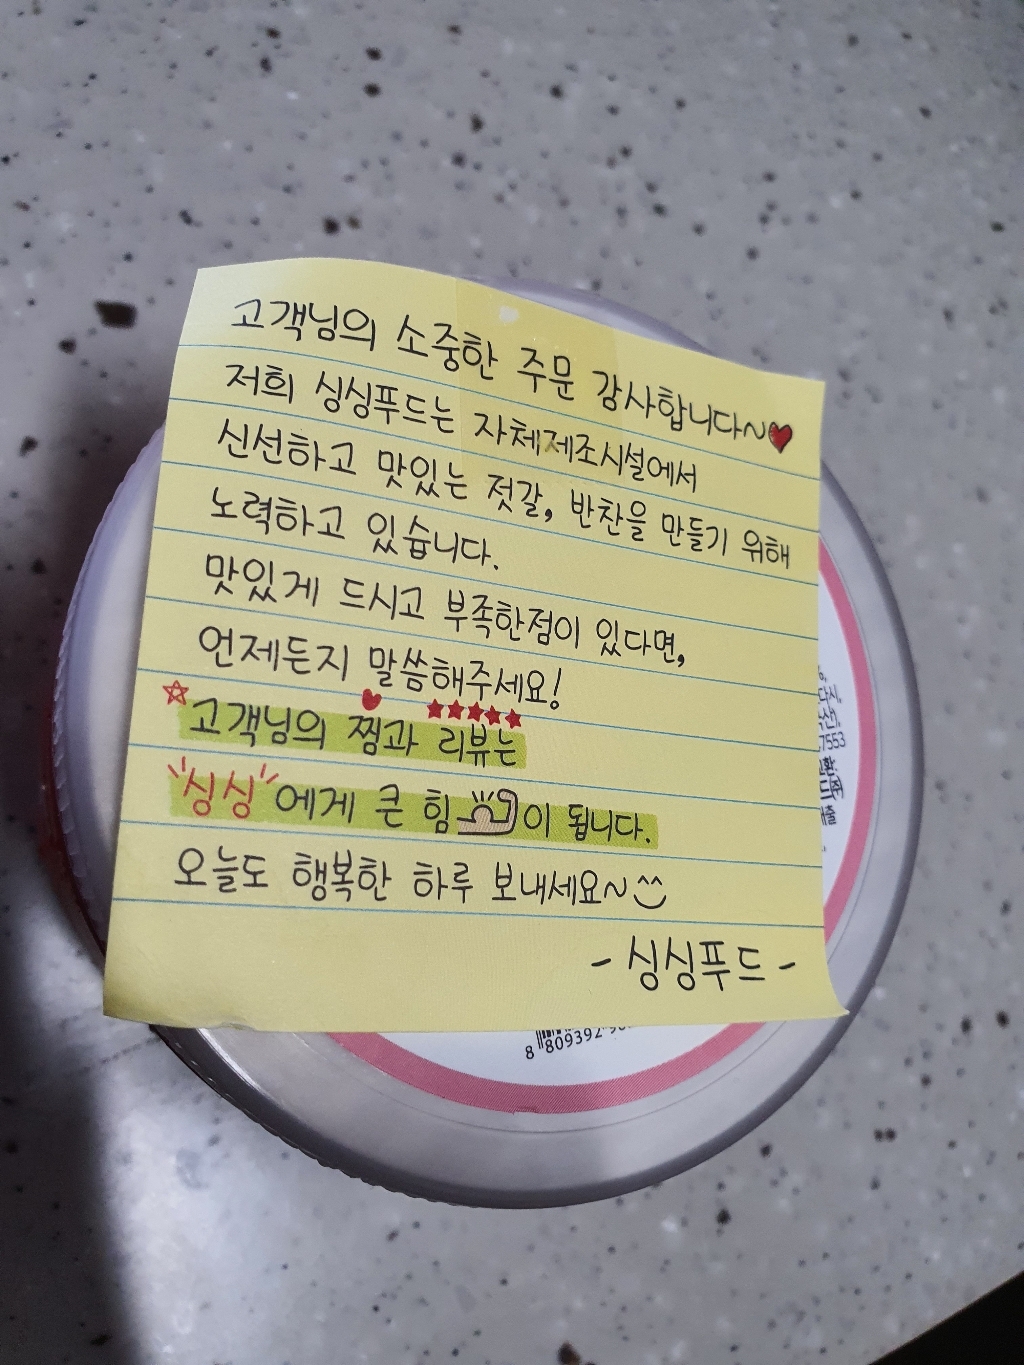 고객님의 소중한 주문 감사합니다~
저희 싱싱푸드는 자체제조시설에서
신선하고 맛있는 젓갈, 반찬을 만들기 위해
노력하고 있습니다.
맛있게 드시고 부족한점이 있다면,
언제든지 말씀해주세요!
고객님의 찜과 리뷰는
"싱싱"에게 큰 힘이 됩니다.
오늘도 행복한 하루 보내세요~
- 싱싱푸드 -
7553
8 809392